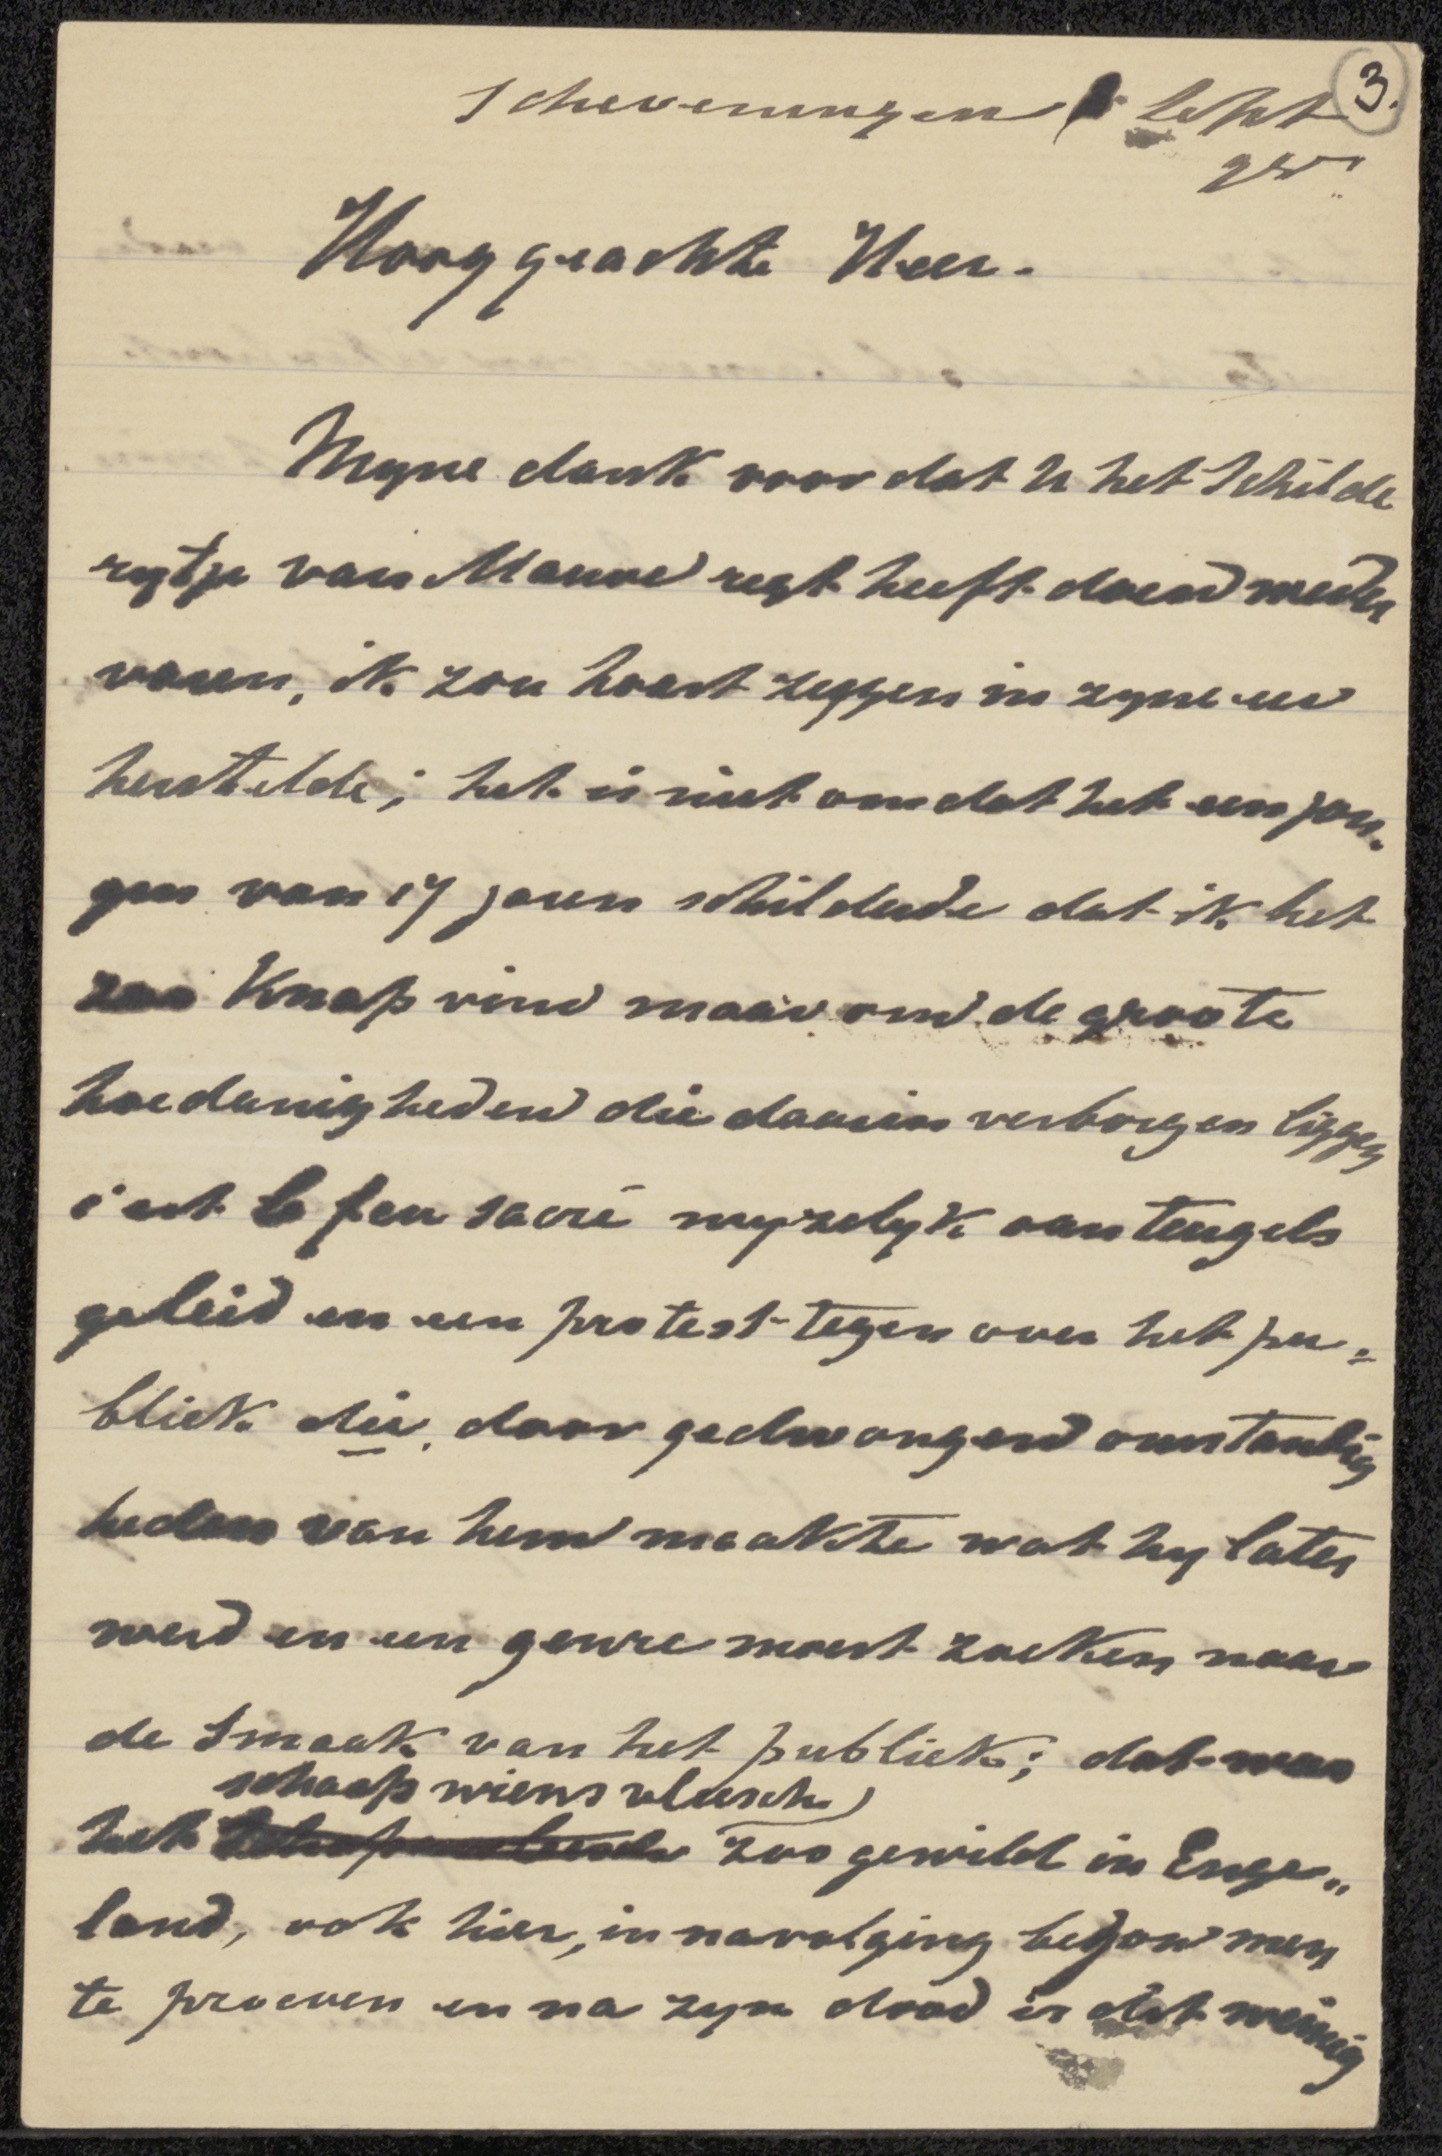 3.
Scheveningen Sept
95
Hooggeachte Heer.
Myne dank voor dat U het Schilde
rytje van Mauve regt heeft doen weder
varen, ik zou haast zeggen in zyne eer
herstelde; het is niet omdat het een jon-
gen van 17 jaren schilderde dat ik het
zoo knap vind maar om de groote
hoedanigheden die daarin verborgen liggen
c'est le feu sacré myzelyk aan teugels
geleid en een protest tegen over het pu=
bliek die door gedwongen omstandig
heden van hem maakte wat hy later
werd en een genre moest zoeken naar
de smaak van het publiek; dat was
schaap wiens vleesch
het zoo gewild in Enge„
land, ook hier, in navolging begon men
te proeven en na zyn dood is dat weinig